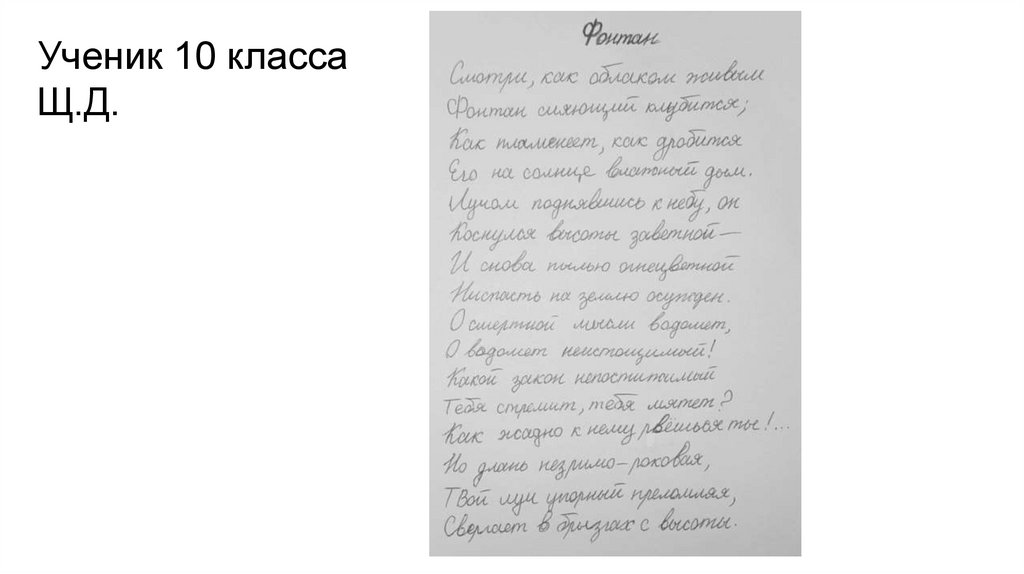 Ученик 10 класса
Щ.Д.
Фонтан
Смотри, как облаком живым
Фонтан сияющий клубится;
Как пламенеет, как дробится
Его на солнце влажный дым.
Лучом поднявшись к небу, он
Коснулся высоты заветной —
И снова пылью огнецветной
Ниспасть на землю осужден.
О смертной мысли водомет,
О водомет неистощимый!
Какой закон непостижимый
Тебя стремит, тебя мятет?
Как жадно к нему рвёшься ты!...
Но длань незримо-роковая,
Твой луч упорный преломляя,
Свергает в брызгах с высоты.